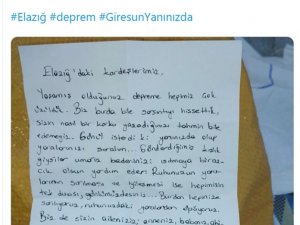 #Elazığ #deprem #GiresunYanınızda
Elazığ'daki kardeşlerimiz,
Yaşamış olduğunuz depreme hepimiz çok
üzüldük. Biz burda bile sarsıntıyı hissettik,
sizin nasıl bir korku yaşadığınızı tahmin bile
edemeyiz. Gönül isterdi ki yanınızda olup
yaralarınızı saralım... Gönderdiğimiz
giysiler umarız bedeninizi ısıtmaya biraz
olsun yardım eder. Ruhunuzun yara
sarılması ve iyileşmesi ise hepimizin
tek duası, Burdan hepinize
sarılıyoruz, ruhunuzdaki yaralardan öpüyoruz.
Biz de sizin aileniziz; anneniz, babanız,